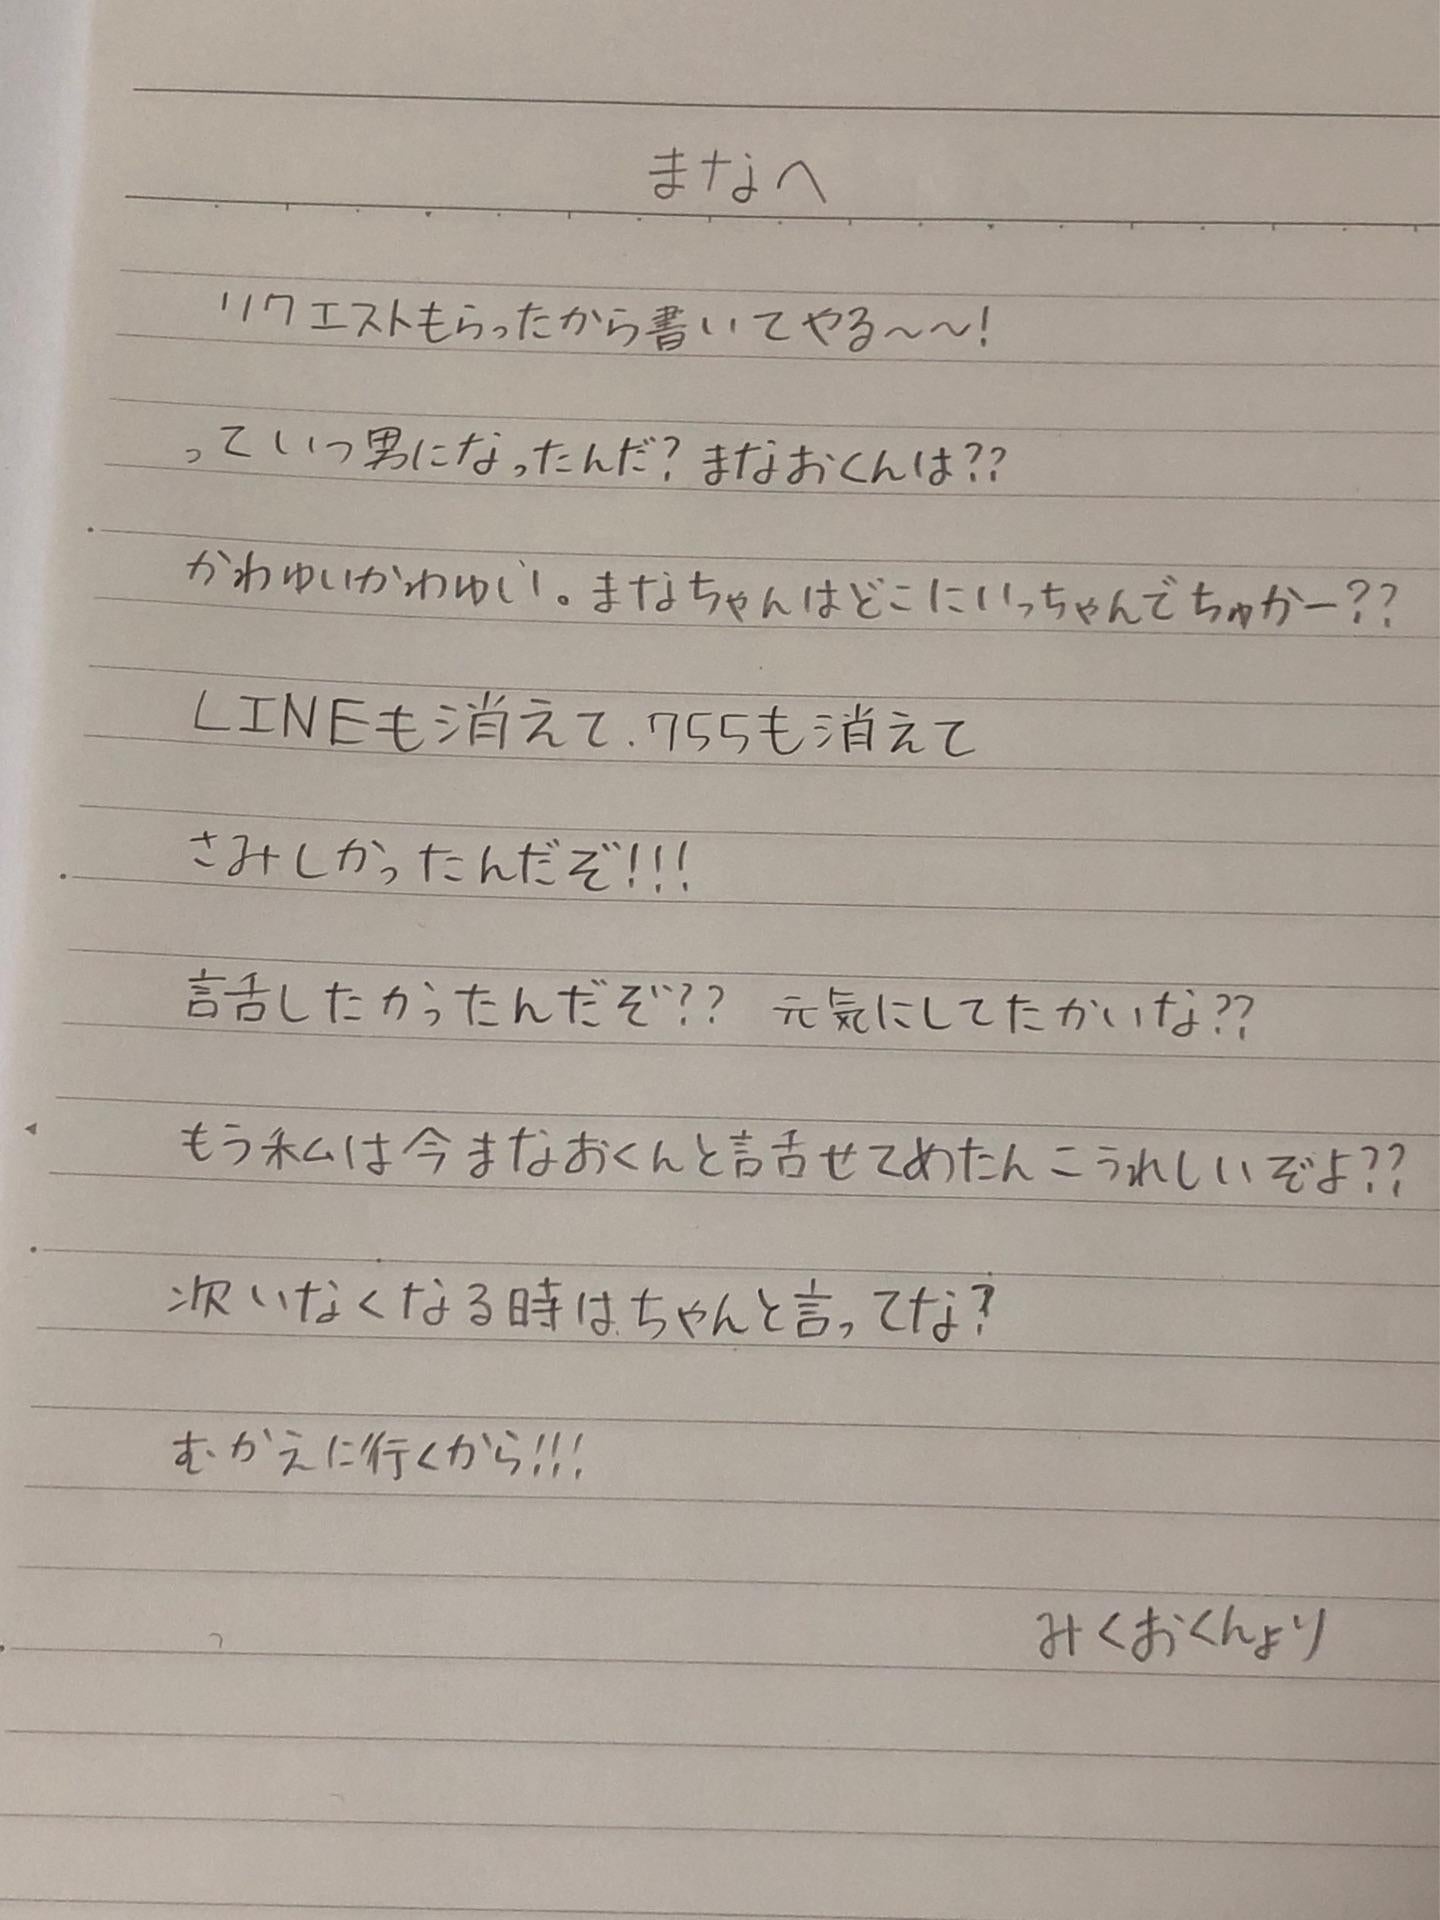 まなへ
リクエストもらったから書いてやる〜〜!
っていつ男になったんだ? まなおくんは??
かわゆいかわゆい。まなちゃんはどこにいっちゃんでちゅかー??
LINEも消えて、755も消えて
さみしかったんだぞ!!!
話したかったんだぞ?? 元気にしてたかいな??
もう私は今まなおくんと話せてめたんこうれしいぞよ??
次いなくなる時はちゃんと言ってな?
むかえに行くから!!!
みくおくんより